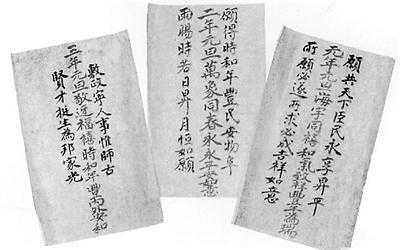 願共天下臣民永享昇平
元年元旦海宇同禧和氣致祥豐年為瑞
所願必遂所求必成吉祥如意
願得時和年豐民安物阜
二年元旦萬象同春永永平安如意
雨暘時若日昇月恒如願
敷政寧人事惟師古
五年元旦敬迓福禧時和年豐安和
賢才挺生為邦家光